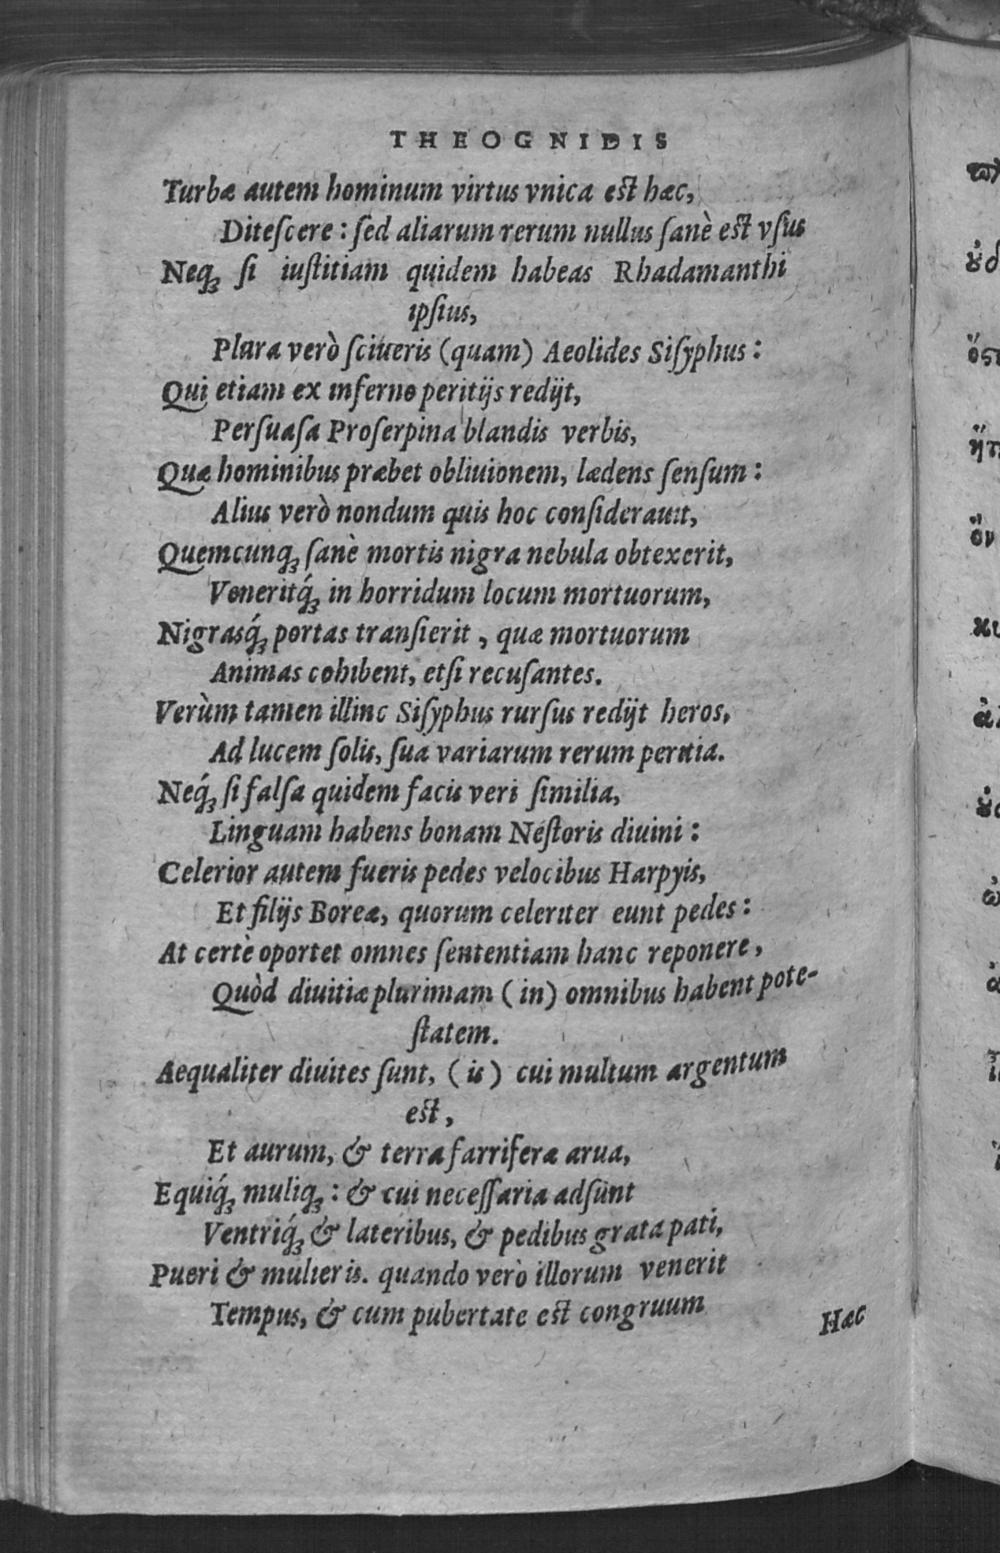 THEOGNIDIS
Turbæ autem hominum virtus vnica est hæc,
Diteſcere : ſed aliarum rerum nullus ſanè est vſus
Neq; ſi iuſtitiam quidem habeas Rhadamanthi
ipſius,
Plura verò ſciueris (quam) Aeolides Siſyphus :
Qui etiam ex inferno peritijs redijt,
Perſuaſa Proſerpina blandis verbis,
Quæ hominibus præbet obliuionem, lædens ſenſum :
Alius verò nondum quis hoc conſiderauit,
Quemcunq; ſanè mortis nigra nebula obtexerit,
Veneritq́; in horridum locum mortuorum,
Nigrasq́; portas tranſierit , quæ mortuorum
Animas cohibent, etſi recuſantes.
Verùm tamen illinc Siſyphus rurſus redijt heros,
Ad lucem ſolis, ſua variarum rerum peritia.
Neq́; ſi falſa quidem facis veri ſimilia,
Linguam habens bonam Neſtoris diuini :
Celerior autem fueris pedes velocibus Harpyis,
Et filijs Boreæ, quorum celeriter eunt pedes :
At certè oportet omnes ſententiam hanc reponere ,
Quòd diuitiæ plurimam ( in) omnibus habent pote-
ſtatem.
Aequaliter diuites ſunt, ( is ) cui multum argentum
est ,
Et aurum, & terra farrifera arua,
Equiq́; muliq; : & cui neceſſaria adſunt
Ventriq́; & lateribus, & pedibus grata pati,
Pueri & mulieris. quando verò illorum venerit
Tempus, & cum pubertate est congruum
Hæc